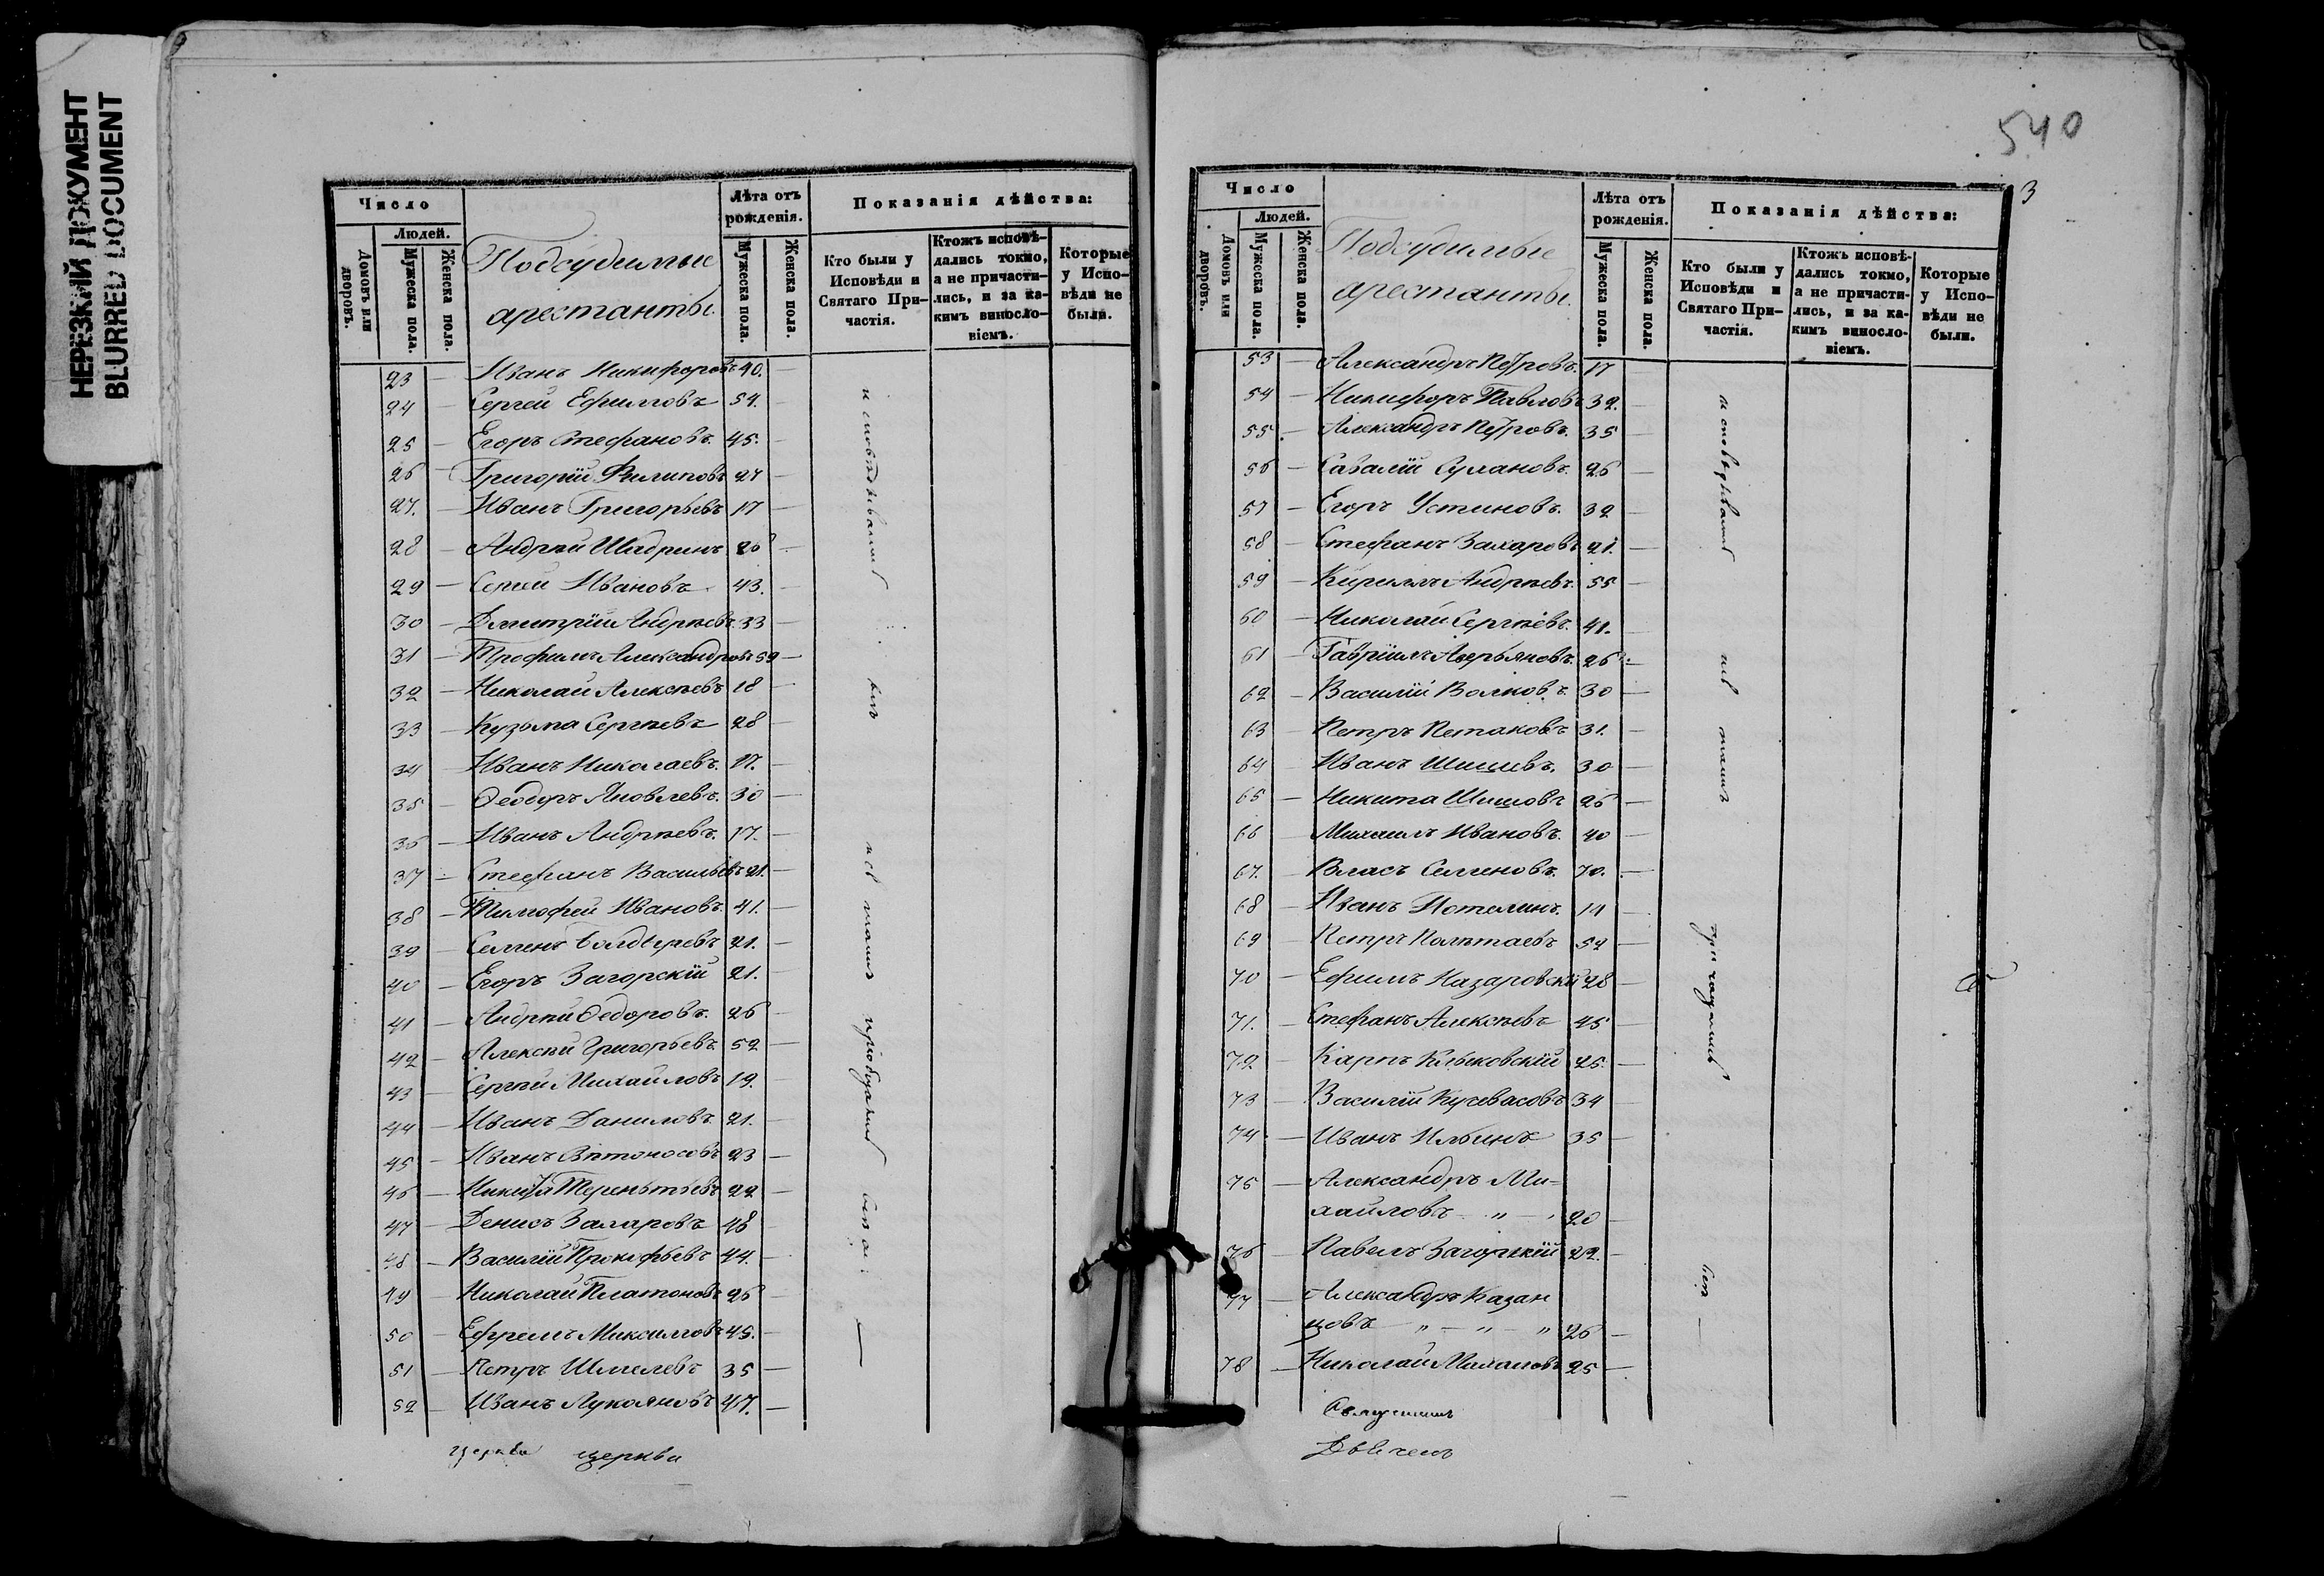 НЕРЕЗКИЙ ДОКУМЕНТ
BLURRED DOCUMENT
Число
Людей.
Домовъ или дворовъ.
Мужеска пола.
Женска пола.
Подсудимые
арестанты.
Лѣта отъ рожденія.
Мужеска пола.
Женска пола.
Показанія дѣйства:
Кто были у Исповѣди и Святаго При-частія.
Ктожъ исповѣ-дались токмо, а не причасти-лись, и за ка-кимъ винosло-віемъ.
Которые у Испо-вѣди не были.
23 — Иванъ Никифоровъ 40. —
24 — Сергей Ефимовъ 54. —
25 — Егоръ Стефановъ. 45. —
26 — Григорій Филиповъ 27 —
27. — Иванъ Григорьевъ 17 —
28 — Андрей Шадринъ 26 —
29 — Сергей Ивановъ 43. —
30 — Дмитрій Андреевъ. 33 —
31 — Трофимъ Александровъ 59 —
32 — Николай Алексѣевъ 18 —
33 — Кузьма Сергѣевъ 28 —
34 — Иванъ Николаевъ. 17. —
35 — Ѳеодоръ Яковлевъ. 30 —
36 — Иванъ Андреевъ. 17. —
37 — Стефанъ Васильевъ 21. —
38 — Тимофей Ивановъ. 41. —
39 — Семенъ Болдыревъ 21. —
40 — Егоръ Загорскій 21. —
41 — Андрей Ѳедоровъ. 26 —
42 — Алексѣй Григорьевъ. 52 —
43 — Сергѣй Михайловъ 19. —
44 — Иванъ Даниловъ. 21. —
45 — Иванъ 23 —
46 — Никита Терентьевъ 22 —
47 — Денисъ Захаровъ 48 —
48 — Василій Прокофьевъ 44. —
49 — Николай Платоновъ 26 —
50 — Ефремъ Максимовъ 45. —
51 — Петръ Шмелевъ 35 —
52 — Иванъ Лукояновъ 47. —
церкви церкви
540
3
Число
Людей.
Домовъ или дворовъ.
Мужеска пола.
Женска пола.
Подсудимые
арестанты.
Лѣта отъ рожденія.
Мужеска пола.
Женска пола.
Показанія дѣйства:
Кто были у Исповѣди и Святаго При-частія.
Ктожъ исповѣ-дались токмо, а не причасти-лись, и за ка-кимъ винosло-віемъ.
Которые у Испо-вѣди не были.
53 — Александръ Петровъ. 17 —
54 — Никифоръ Павловъ 32. —
55 — Александръ Петровъ. 35 —
56 — Савалій Сулановъ. 26 —
57 — Егоръ Устиновъ. 32 —
58 — Стефанъ Захаровъ 21. —
59 — Кирилъ Андреевъ. 55 —
60 — Николай Сергѣевъ. 41. —
61 — Гавріилъ Аверьяновъ. 26 —
62 — Василій Волковъ. 30 —
63 — Петръ Петаковъ 31. —
64 — Иванъ Шишевъ. 30 —
65 — Никита Шишовъ 26 —
66 — Михаилъ Ивановъ. 40 —
67. — Власъ Семеновъ. 70. —
68 — Иванъ Потемин. 19 —
69 — Петръ Полѣтаевъ 52 —
70 — Ефимъ Назаровскій 28 —
71. — Стефанъ Алексѣевъ 45 —
72 — Карпъ 25. —
73 — Василій 34 —
74 — Иванъ Ильинъ 35 —
75 — Александръ Ми-
хайловъ „ — 20 —
76 — Павелъ Загорскій 22. —
77 — Александръ Казан
цовъ — „ — „ — „ 26 —
78 — Николай Михаловъ 25 —